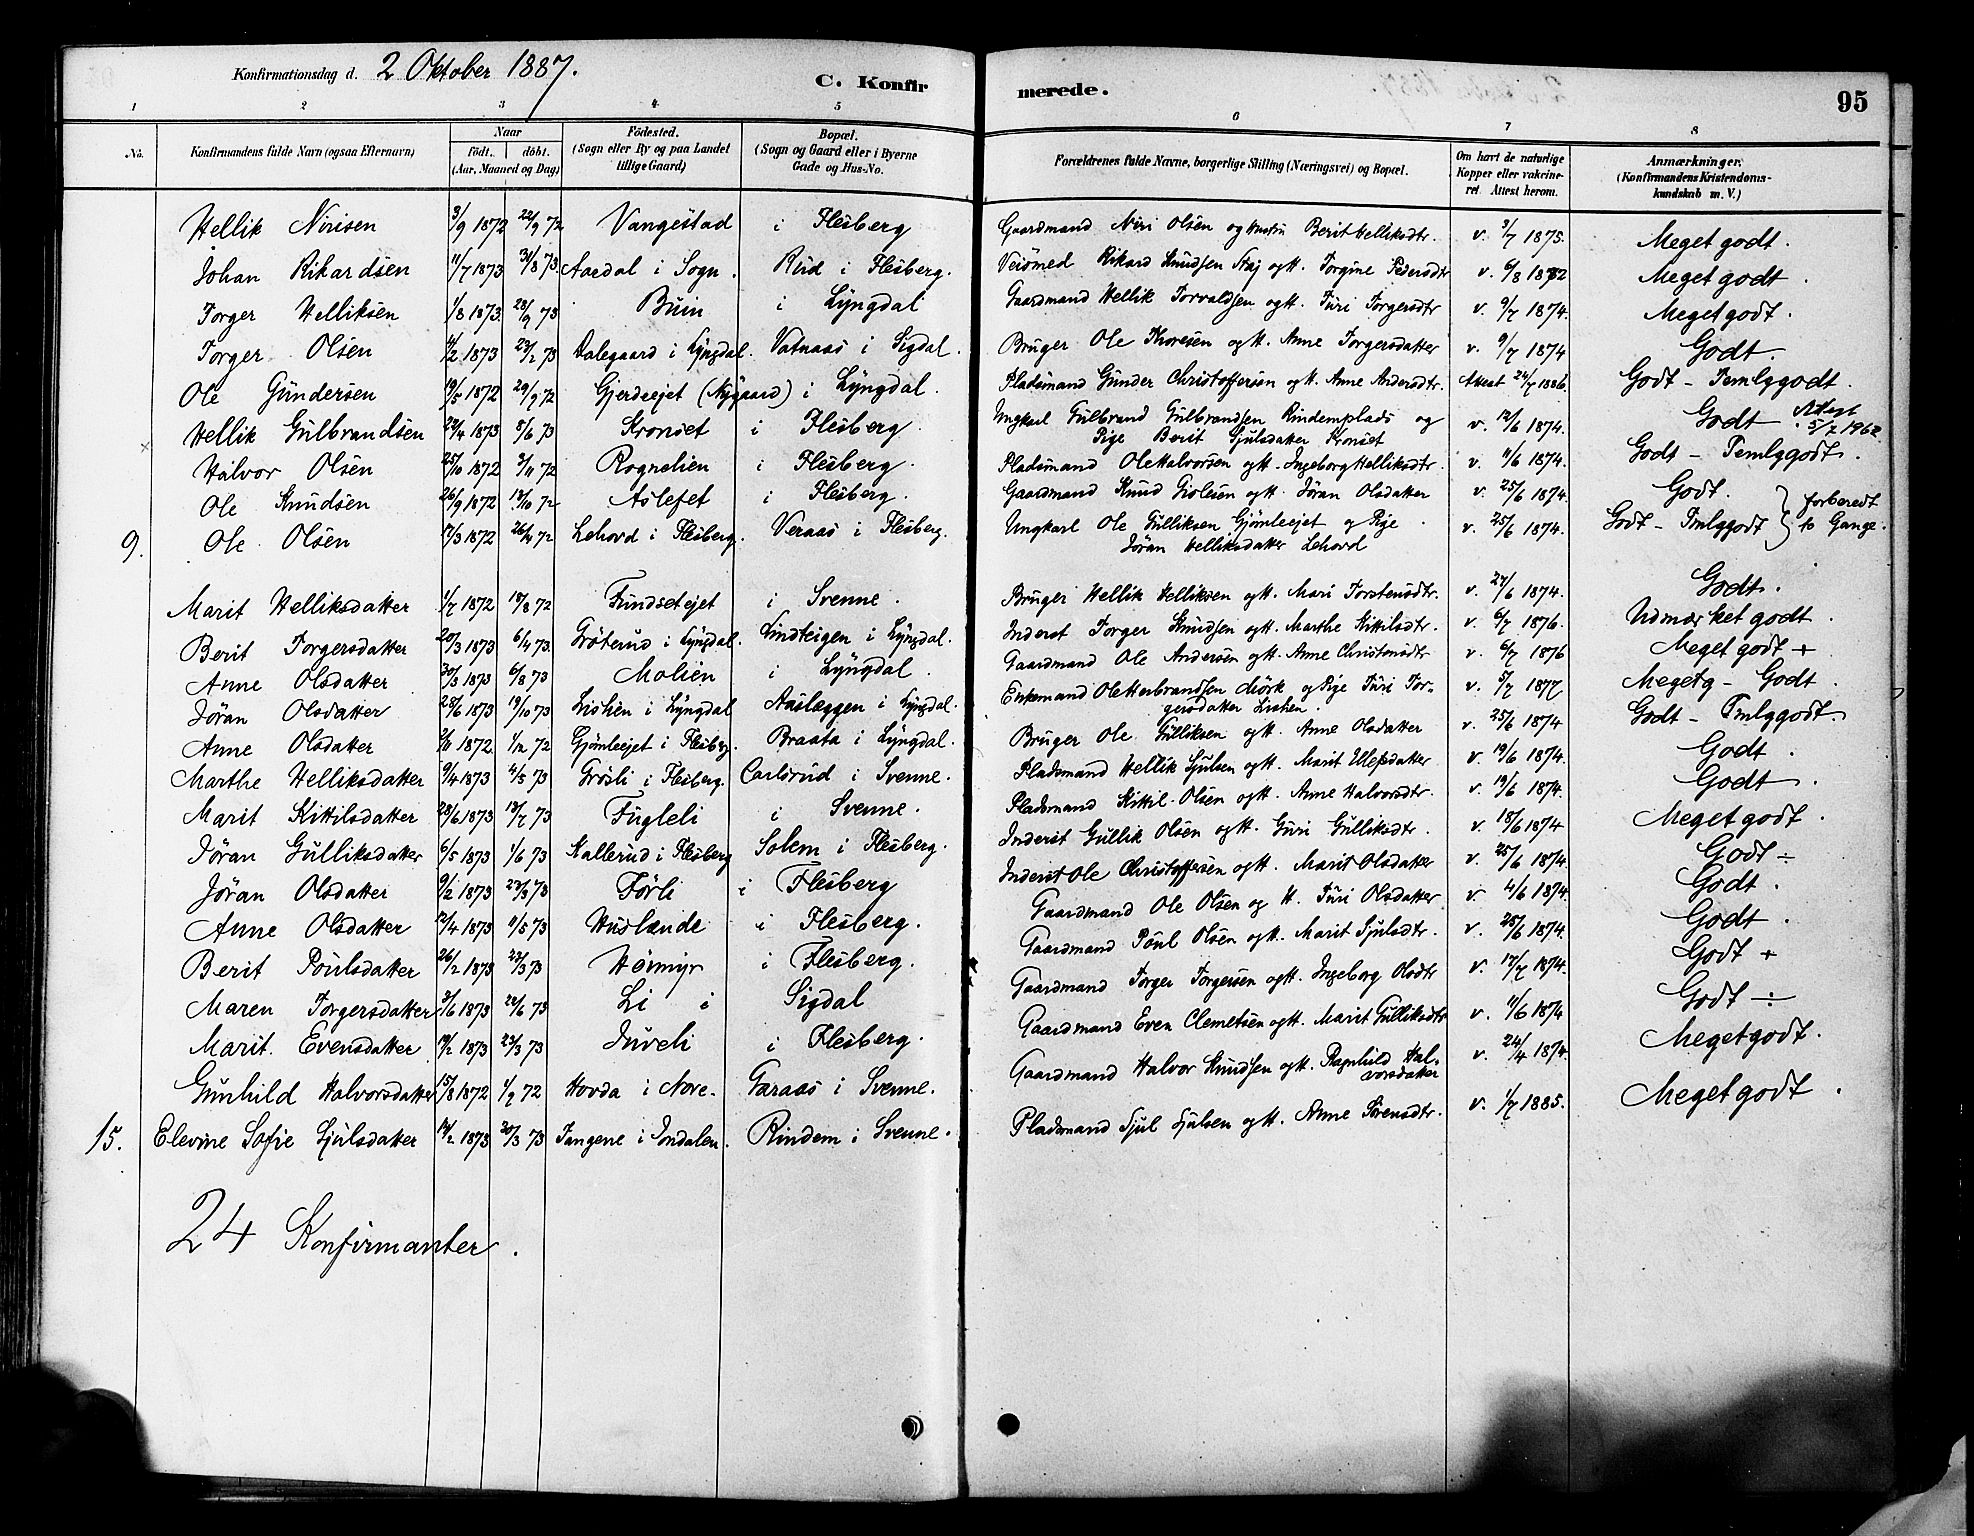 Konfirmationsdag d. 2 Oktober 1887.
C. Konfir merede. 95
1 2 3 4 5 6 7 8
No. Konfirmandens fulde Navn (ogsaa Efternavn) Naar födt. döbt. (Aar, Maaned og Dag) Födested. (Sogn eller By og paa Landet tillige Gaard) Bopæl. (Sogn og Gaard eller i Byerne Gade og Hus-No. Forældrenes fulde Navne, borgerlige Stilling (Næringsvei) og Bopæl. Om havt de naturlige Kopper eller vakcineret. Attest herom. Anmærkninger. (Konfirmandens Kristendomskundskab m. V.)
Hellik Nirisen 3/9 1872 22/9 72 Vangestad i Flesberg Gaardmand Niri Olsen og Hustru Berit Helliksdtr. v. 3/7 1875. Meget godt.
Johan Rikardsen 11/7 1873 31/8 73 Aardal i Sogn. Rud i Flesberg. Rikard Knudsen ogH. Torgine Pedersdtr v. 6/8 1882 Meget godt.
Torger Helliksen 1/8 1873. 28/9 73 Buin i Lyngdal Gaardmand Hellik Torvaldsen ogH. Turi Torgersdtr v. 9/7 1874. Meget godt.
Torger Olsen 4/2 1873 23/2 73 Dalegaard i Lyngdal. Vatnaas i Sigdal. Bruger Ole Thoresen ogH. Anne Torgersdatter v. 9/7 1874 Godt.
Ole Gundersen 19/5 1872 29/9 72 Gjerdeejet (Nygaard) i Lyngdal. Pladsmand Gunder Christoffersen ogH. Anne Andersdtr. Attest 24/7 1886. Godt - Temlygodt.
Hellik Gulbrandsen 29/4 1873 8/6 73 Kronset i Flesberg. Ungkarl Gulbrand Gulbrandsen Rindemplads og v. 12/6 1874. Godt. Attest 5/7 1962
Pige Berit Gjulsdatter Kronset
Halvor Olsen 25/10 1872 3/11 72 Rognelien i Flesberg. Pladsmand Ole Halvorsen ogH. Ingeborg Helliksdtr. v. 11/6 1874. Godt - Temlygodt.
Ole Knudsen 26/9 1872 13/10 72 Aslefet i Flesberg. Gaardmand Knud Gislesen ogH. Jöran Olsdatter v. 25/6 1874. Godt. } forberedt
9. Ole Olsen 17/3 1872 26/4 72 Lehovd i Flesberg. Veraas i Flesberg. Ungkarl Ole Gulliksen Gjömleejet og Pige v. 25/6 1874. Godt - Tmlygodt to Gange.
Jöran Helliksdatter Lehovd
Marit Helliksdatter 1/7 1872 18/8 72 Fundsetejet i Svenne. Bruger Hellik Helliksen ogH. Mari Torstensdtr. v. 27/6 1874. Godt.
Berit Torgersdatter 20/3 1873 6/4 73 Gröterud i Lyngdal. Lindteigen i Lyngdal. Inderst Torger Knudsen ogH. Marthe Kittilsdtr. v. 6/7 1876. Udmærket godt.
Anne Olsdatter 30/3 1873 6/8 73 Molien i Lyngdal. Gaardmand Ole Andersen ogH. Anne Christensdtr v. 6/7 1876 Meget godt +
Jöran Olsdatter 28/6 1873 19/10 73 Lislien i Lyngdal Aaslæggen i Lyngdal. Enkemand Ole Herbrandsen Mörk og Pige Turi Tor- v. 5/7 1877 Megetg - Godt.
gersdatter Lislien.
Anne Olsdatter 1872 72 Gjömleejet i Flesberg. Braata i Lyngdal. Bruger Ole Gulliksen ogH. Anne Olsdatter v. 25/6 1874 Godt - Tmlygodt.
Marthe Helliksdatter 9/4 1873 4/5 73 Grösli i Flesberg. Carlsrud i Svenne. Pladsmand Hellik Gjulsen ogH. Marit Ulefsdatter v. 19/6 1874. Godt.
Marit Kittilsdatter 28/6 1873 13/7 73 Fugleli i Svenne. Pladsmand Kittil Olsen ogH. Anne Halvorsdtr. v. 19/6 1874. Godt.
Jöran Gulliksdatter 6/5 1873 1/6 73 Kallerud i Flesberg Solem i Flesberg. Inderst Gullik Olsen ogH. Guri Gulliksdtr. v. 18/6 1874 Meget godt.
Jöran Olsdatter 9/2 1873 23/3 73 Förli i Flesberg Inderst Ole Christoffersen ogH. Marit Olsdatter v. 25/6 1874. Godt ÷
Anne Olsdatter 12/4 1873 11/5 73 Huslænde i Flesberg. Gaardmand Ole Olsen og H. Turi Olsdatter v. 4/6 1874. Godt.
Berit Poulsdatter 26/2 1873 23/3 73 Höimyr i Flesberg. Gaardmand Poul Olsen ogH. Marit Gjulsdtr. v. 25/6 1874. Godt.
Maren Torgersdatter 3/6 1873 22/6 73 Li i Sigdal Gaardmand Torger Torgersen ogH. Ingeborg Olsdtr v. 17/7 1874. Godt +
Marit. Evensdatter 19/2 1873 23/3 73 Juveli i Flesberg. Gaardmand Even Clemetsen ogH. Marit Gulliksdtr v. 11/6 1874 Godt ÷
Gunhild Halvorsdatter 15/8 1872 1/9 72 Hovda i Nore. Garaas i Svenne. Gaardmand Halvor Knudsen ogH. Ragnhild Hal- v. 24/4 1874. Meget godt.
vorsdatter
15. Elevine Sofie Gjulsdatter 14/2 1873 20/3 73 Tangene i Jondalen. Rindem i Svenne. Pladsmand Gjul Gjulsen ogH. Anne Sörensdtr. v. 1/7 1885. Meget godt.
24 Konfirmanter.